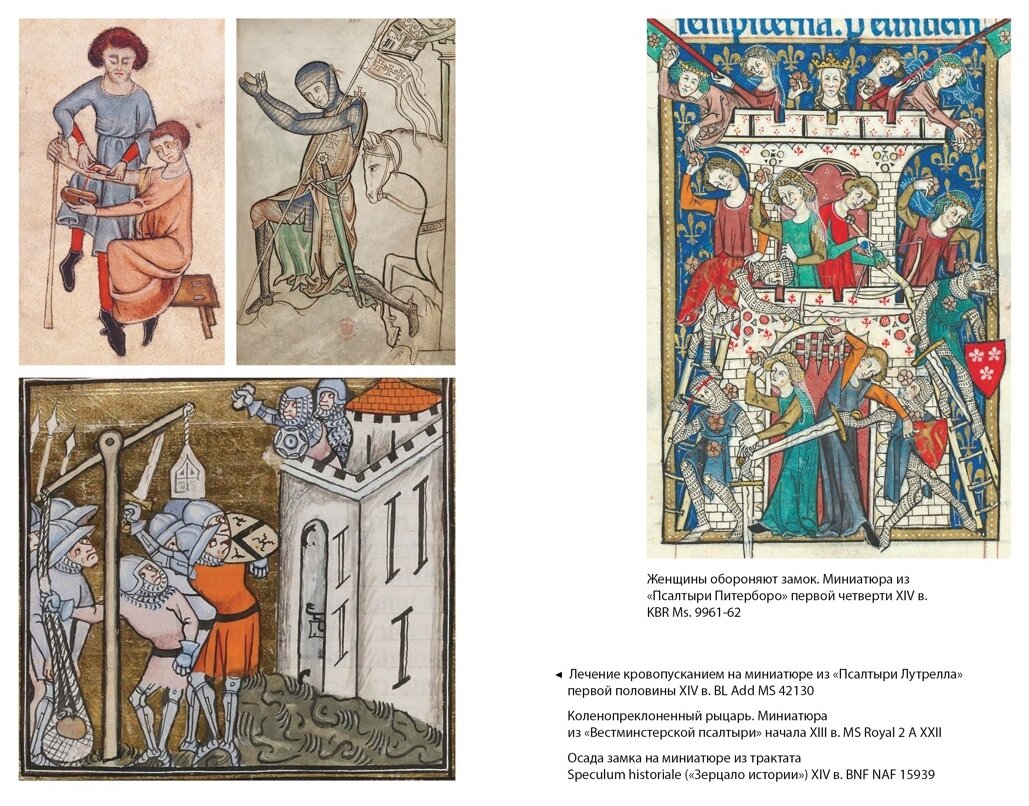 Женщины обороняют замок. Миниатюра из
«Псалтыри Питерборо» первой четверти XIV в.
KBR Ms. 9961-62
◄ Лечение кровопусканием на миниатюре из «Псалтыри Лутрелла»
первой половины XIV в. BL Add MS 42130
Коленопреклоненный рыцарь. Миниатюра
из «Вестминстерской псалтыри» начала XIII в. MS Royal 2 A XXII
Осада замка на миниатюре из трактата
Speculum historiale («Зерцало истории») XIV в. BNF NAF 15939